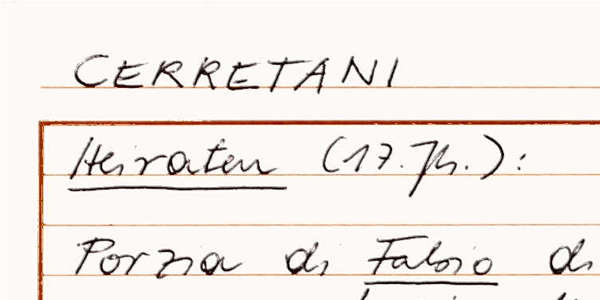 CERRETANI
Heiraten (17. Jh.):
Porzia di Fabio di